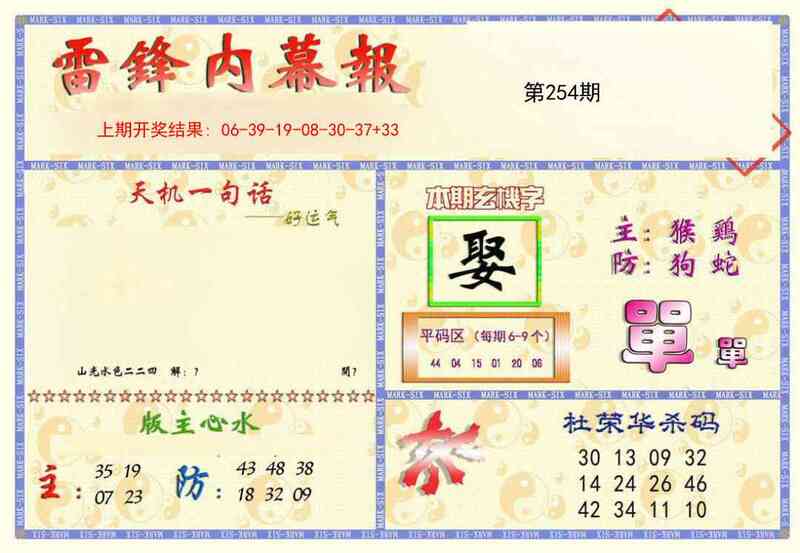 雷鋒内幕報
第254期
上期开奖结果：06-39-19-08-30-37+33
天机一句话
——好运气
山光水色二二四　解：?　開?
本期玄機字
娶
主：猴 鷄
防：狗 蛇
單 單
平码区（每期6-9个）
44 04 15 01 20 06
版主心水
主：
35 19
07 23
防：
43 48 38
18 32 09
杜荣华杀码
30 13 09 32
14 24 26 46
42 34 11 10
MARK-SIX